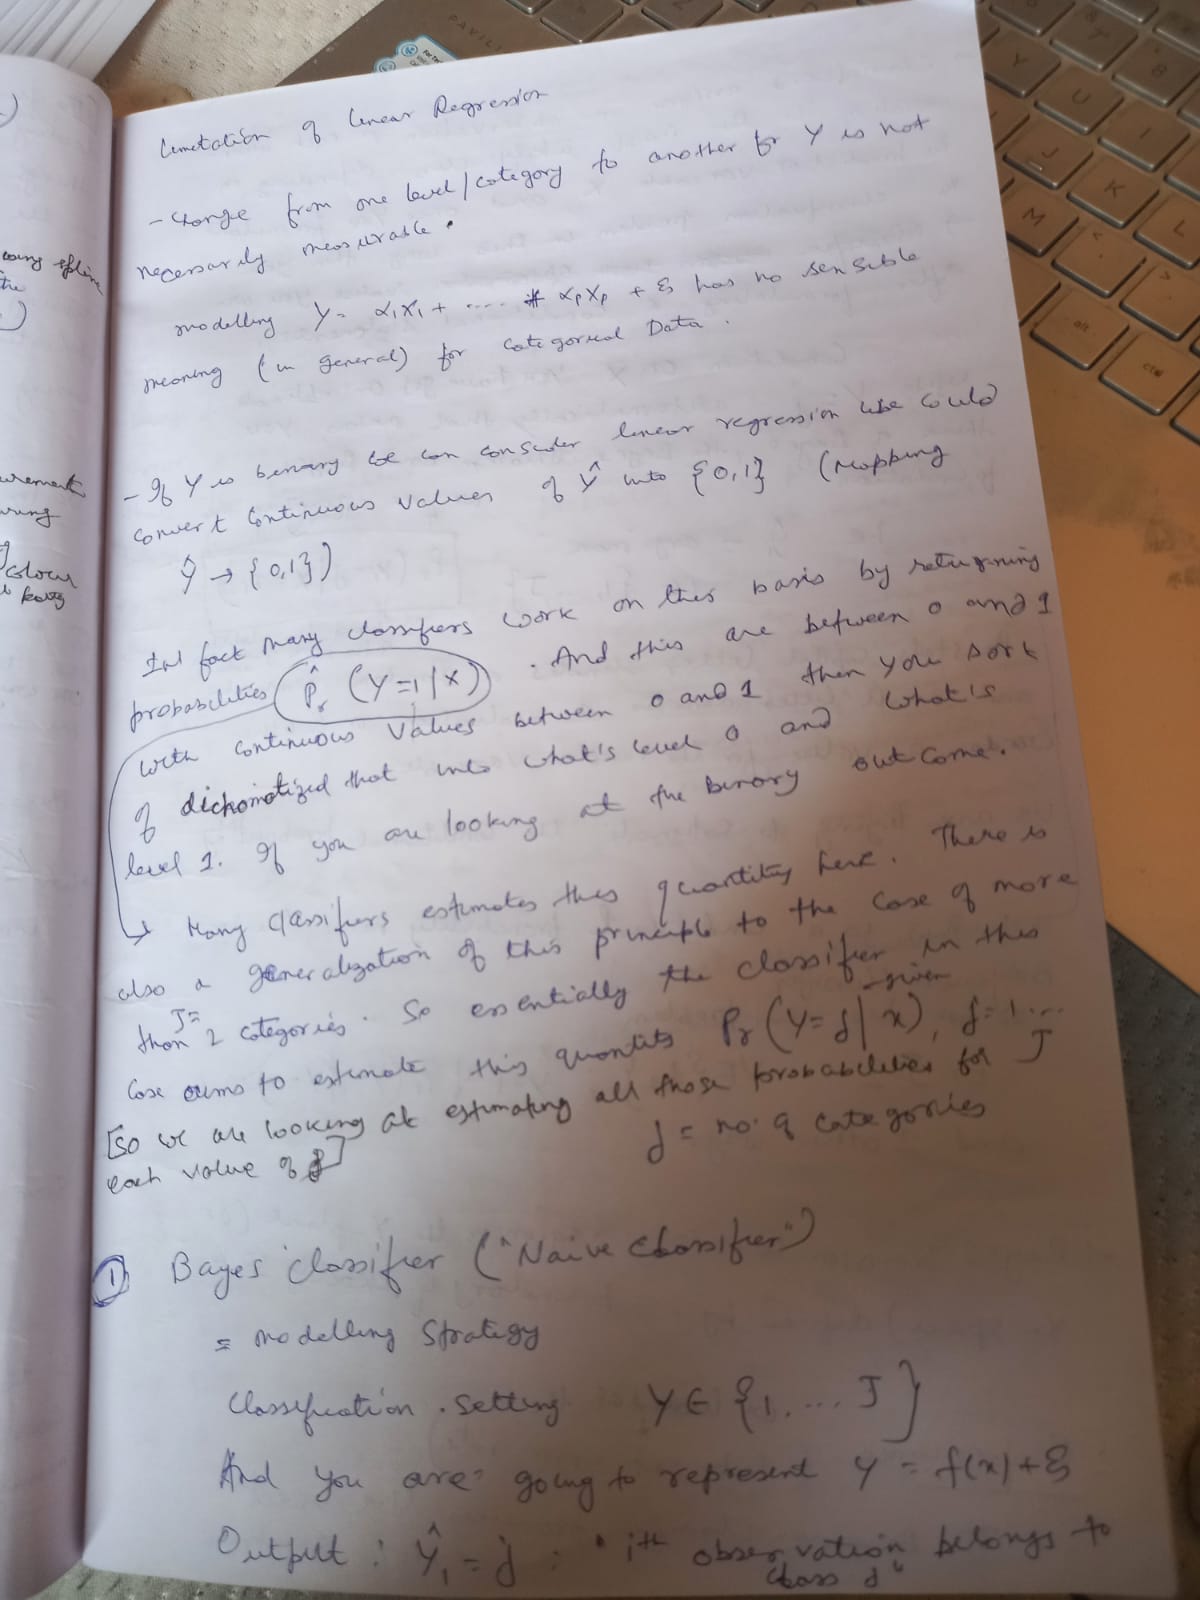 Limitation of linear Regression
- Change from one level/category to another for Y is not
necessarily measurable.
modelling Y = α₁X₁ + .... + αₚXₚ + ε has no sensible
meaning (in general) for categorical Data.
- If Y is binary we can consider linear regression we could
convert continuous values of Ŷ into {0,1} (mapping
Ŷ → {0,1})
In fact many classifiers work on this basis by returning
probabilities P̂r (Y=1|X). And this are between 0 and 1
with continuous values between 0 and 1 then you sort
of dichomotized that into what's level 0 and what's
level 1. If you are looking at the binary outcome.
→ Many classifiers estimates this quantity here. There is
also a generalization of this principle to the case of more
than J= 2 categories. So essentially the classifier in this
case aims to estimate this quantity Pr (Y=j|x), j=1...J
given
[so we are looking at estimating all those probabilities for
each value of j]
j = no. of categories
① Bayes classifier ("Naive classifier")
= modelling Strategy
Classification setting Y ∈ {1, .... J}
And you are going to represent y = f(x) + ε
Output : Ŷ₁ = j : "ith observation belongs to
class j"
PAVILI
Y
U
8
J
I
M
K
L
alt
ctrl